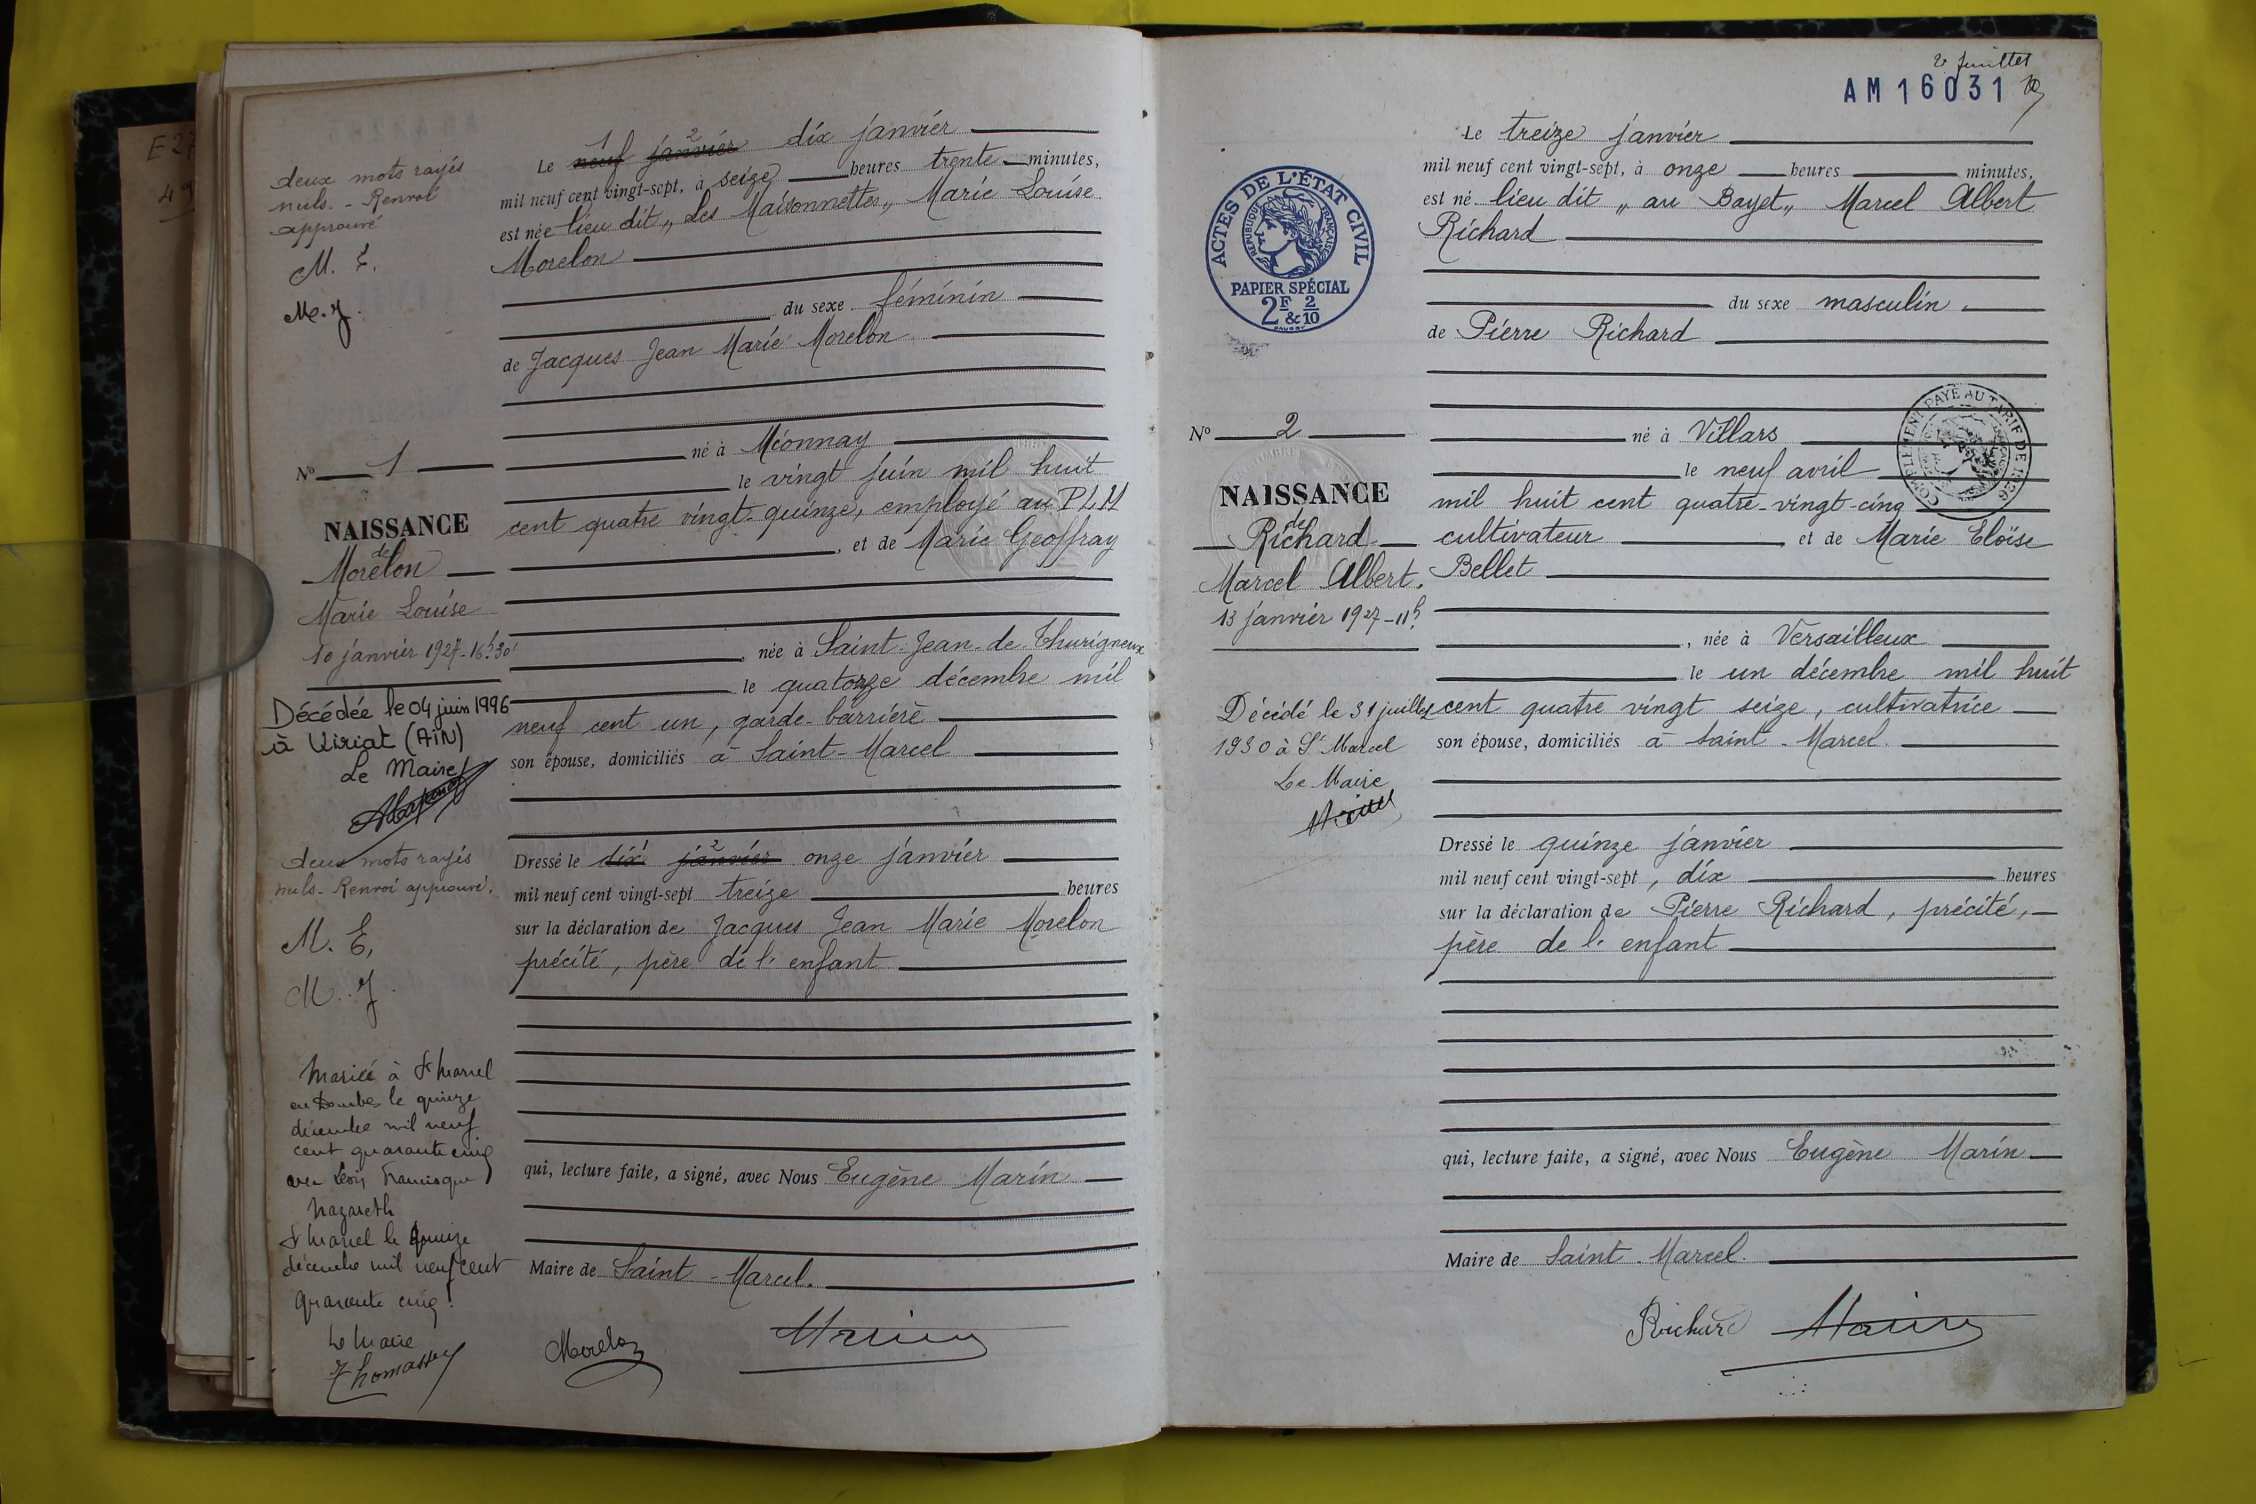 E 27
deux mots rayés
nuls. - Renvoi
approuvé
M. E.
M. J.
N° 1
NAISSANCE
de
Morelon
Marie Louise
10 janvier 1927 - 16h 30'
Décédée le 04 juin 1996
à Viriat (AIN)
Le Maire
deux mots rayés
nuls - Renvoi approuvé.
M. E,
M. J.
Mariée à St Marcel
en Dombes le quinze
décembre mil neuf
cent quarante cinq
avec Léon Francisque
Nazareth
St Marcel le quinze
décembre mil neuf cent
quarante cinq.
Le Maire
Thomasset
1 2
Le neuf janvier dix janvier
mil neuf cent vingt-sept, à seize heures trente minutes,
est née lieu dit „ Les Maisonnettes „ Marie Louise
Morelon
du sexe féminin
de Jacques Jean Marie Morelon
né à Mionnay
le vingt juin mil huit
cent quatre vingt-quinze, employé au P L M
, et de Marie Geoffray
, née à Saint-Jean-de-Thurigneux
le quatorze décembre mil
neuf cent un, garde-barrière
son épouse, domiciliés à Saint-Marcel
1 2
Dressé le dix janvier onze janvier
mil neuf cent vingt-sept treize heures
sur la déclaration de Jacques Jean Marie Morelon
précité, père de l'enfant
qui, lecture faite, a signé, avec Nous Eugène Marin
Maire de Saint-Marcel.
Morelon Marin
2 juillet
AM 16031
ACTES DE L'ÉTAT CIVIL
RÉPUBLIQUE FRANÇAISE
PAPIER SPÉCIAL
2F & 2/10
N° 2
NAISSANCE
de
Richard
Marcel Albert.
13 janvier 1927 - 11h
Décédé le 31 juillet
1930 à St Marcel
Le Maire
Le treize janvier
mil neuf cent vingt-sept, à onze heures minutes,
est né lieu dit „ au Bayet „ Marcel Albert
Richard
du sexe masculin
de Pierre Richard
COMPLÉMENT PAYÉ AU TARIF DE 1926
né à Villars
le neuf avril
mil huit cent quatre-vingt-cinq
cultivateur et de Marie Eloïse
Bellet
, née à Versailleux
le un décembre mil huit
cent quatre vingt seize, cultivatrice
son épouse, domiciliés à Saint-Marcel.
Dressé le quinze janvier
mil neuf cent vingt-sept, dix heures
sur la déclaration de Pierre Richard, précité,
père de l'enfant
qui, lecture faite, a signé, avec Nous Eugène Marin
Maire de Saint-Marcel.
Richard Marin